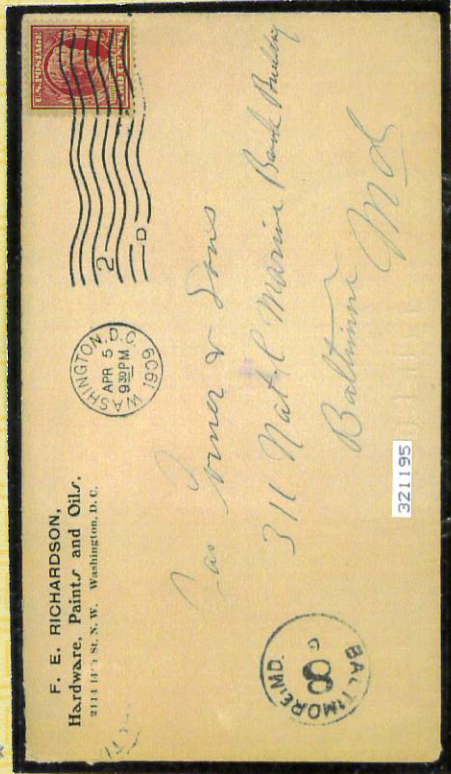 F. E. RICHARDSON,
Hardware, Paints and Oils,
St. N. W. Washington, D. C.
WASHINGTON, D.C.
APR 5
9 30 PM
1909
2
D
U.S. POSTAGE
CENTS
Jas Corner & Sons
311 Nat'l Marine Bank Building
Baltimore
Md
BALTIMORE, MD.
8
321195